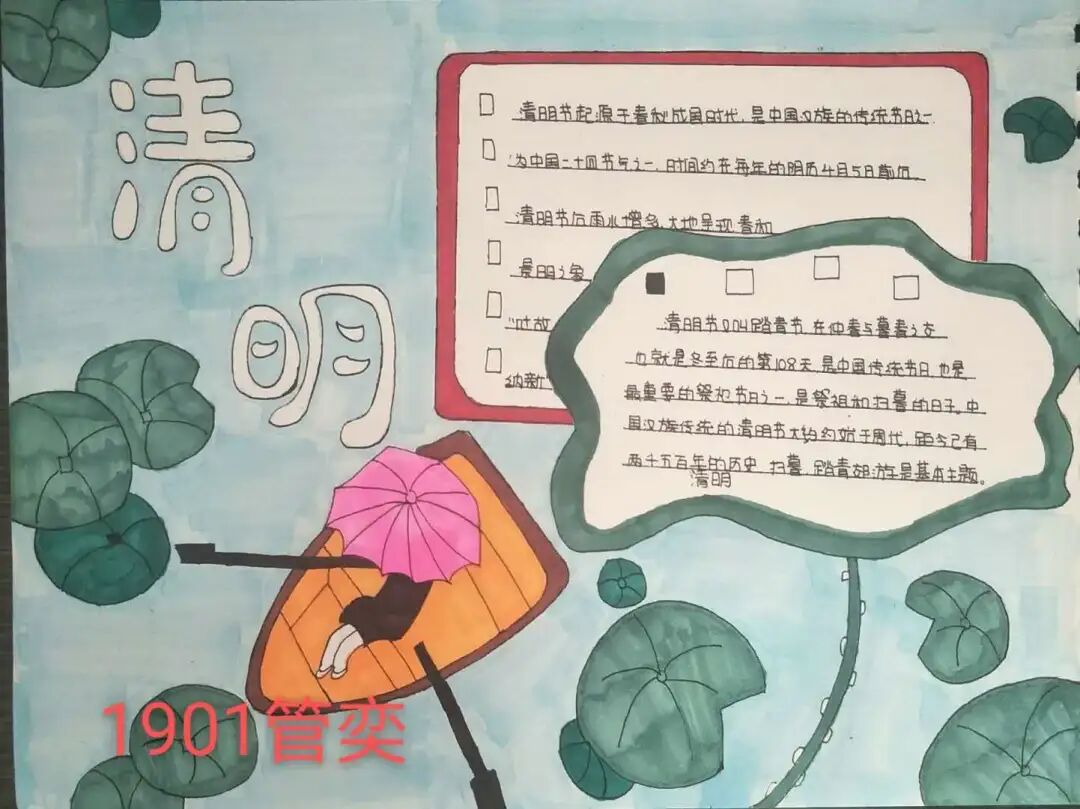 清
明
清明节起源于春秋成国时代，是中国汉族的传统节日之一
"为中国二十四节气之一，时间约在每年的阳历4月5日前后。
清明节后雨水增多，大地呈现春和
景明之象
"吐故
纳新
清明节又叫踏青节，在仲春与暮春之交
也就是冬至后的第108天，是中国传统节日，也是
最重要的祭祀节日之一，是祭祖和扫墓的日子。中
国汉族传统的清明节大约约始于周代，距今已有
两千五百年的历史 扫墓，踏青郊游是基本主题。
清明
1901管奕